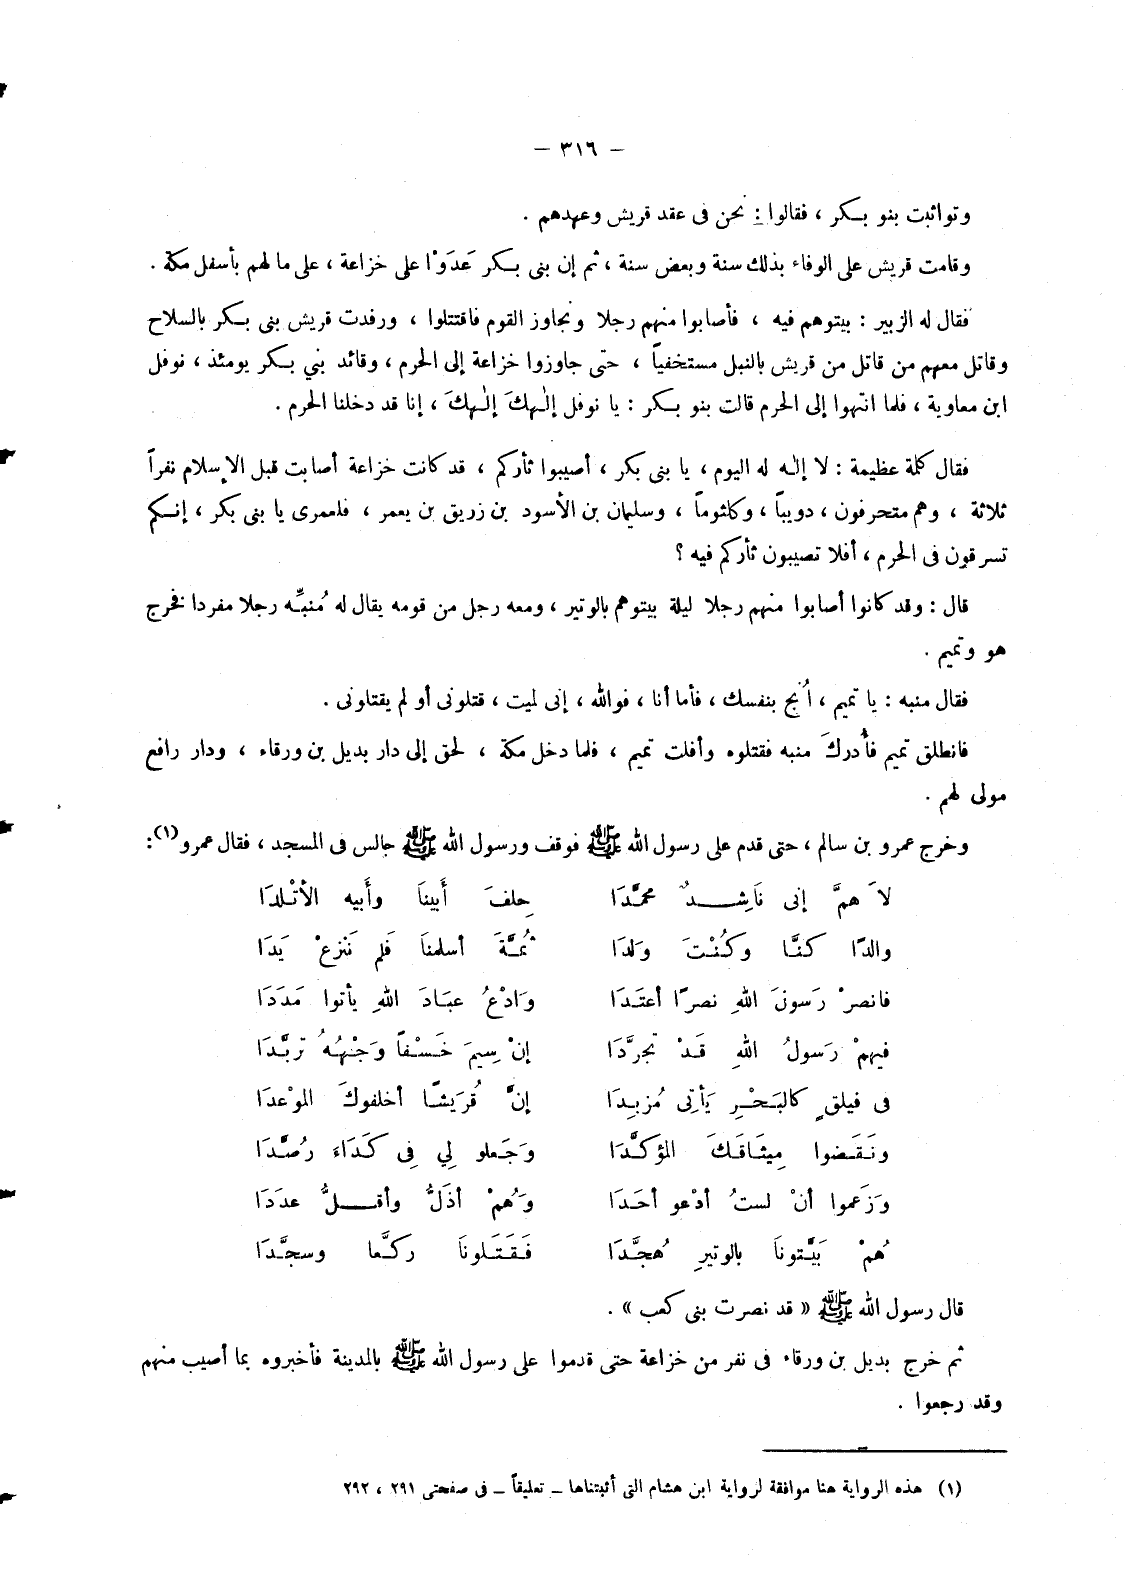 — ٣١٦ —
وتواثبت بنو بكر ، فقالوا : نحن فى عقد قريش وعهدهم .
وقامت قريش على الوفاء بذلك سنة وبعض سنة ، ثم إن بنى بكر عَدَوْا على خزاعة ، على ما لهم بأسفل مكة .
فقال له الزبير : بيتوهم فيه ، فأصابوا منهم رجلا ونجاوز القوم فاقتتلوا ، ورفدت قريش بنى بكر بالسلاح
وقاتل معهم من قاتل من قريش بالنبل مستخفياً ، حتى جاوزوا خزاعة إلى الحرم ، وقائد بني بكر يومئذ ، نوفل
ابن معاوية ، فلما انتهوا إلى الحرم قالت بنو بكر : يا نوفل إلٰهكَ إلٰهكَ ، إنا قد دخلنا الحرم .
فقال كلمة عظيمة : لا إلٰه له اليوم ، يا بنى بكر ، أصيبوا ثأركم ، قد كانت خزاعة أصابت قبل الإسلام نفراً
ثلاثة ، وهم متحرفون ، دويباً ، وكلثوماً ، وسليمان بن الأسود بن زريق بن يعمر ، فلعمرى يا بنى بكر ، إنكم
تسرقون فى الحرم ، أفلا تصيبون ثأركم فيه ؟
قال : وقد كانوا أصابوا منهم رجلا ليلة بيتوهم بالوتير ، ومعه رجل من قومه يقال له مُنبِّه رجلا مفردا فخرج
هو وتميم .
فقال منبه : يا تميم ، اُنج بنفسك ، فأما أنا ، فوالله ، إنى لميت ، قتلونى أو لم يقتلونى .
فانطلق تميم فأُدركَ منبه فقتلوه وأفلت تميم ، فلما دخل مكة ، لحق إلى دار بديل بن ورقاء ، ودار رافع
مولى لهم .
وخرج عمرو بن سالم ، حتى قدم على رسول الله ﷺ فوقف ورسول الله ﷺ جالس فى المسجد ، فقال عمرو(١) :
لاَ همَّ إنى نَاشِدٌ محمَّدَا حِلفَ أَبينَا وأَبيه الأتْلدَا
والدًا كنَّا وكُنْتَ وَلدَا ثُمَّةَ أسلمنَا فَلم نَنزعْ يَدَا
فانصرْ رَسونَ اللهِ نصرًا أعتَدَا وَادْعُ عبَادَ اللهِ يأتوا مَدَدَا
فيهمْ رَسولُ اللهِ قَدْ تجرَّدَا إنْ سِيمَ خَسْفاً وَجْهُهُ تربَّدَا
فى فيلقٍ كالبَحْرِ يَأتِى مُزبِدَا إنَّ قُرَيشًا أخلفوكَ الموْعدَا
ونَقَضوا مِيثَاقَكَ المؤكَّدَا وَجَعلو لِي فِى كَدَاءَ رُصَّدَا
وَزَعموا أنْ لستُ أدْعو أحَدَا وَهُمْ أذَلُّ وأقلُّ عدَدَا
هُمْ بَيَّتونَا بالوتيرِ هُجَّدَا فَقَتَلونَا ركَّعا وسجَّدَا
قال رسول الله ﷺ « قد نصرت بنى كعب » .
ثم خرج بديل بن ورقاء فى نفر من خزاعة حتى قدموا على رسول الله ﷺ بالمدينة فأخبروه بما أصيب منهم
وقد رجعوا .
(١) هذه الرواية هنا موافقة لرواية ابن هشام التى أثبتناها – تعليقاً – فى صفحتى ٢٩١ ، ٢٩٢